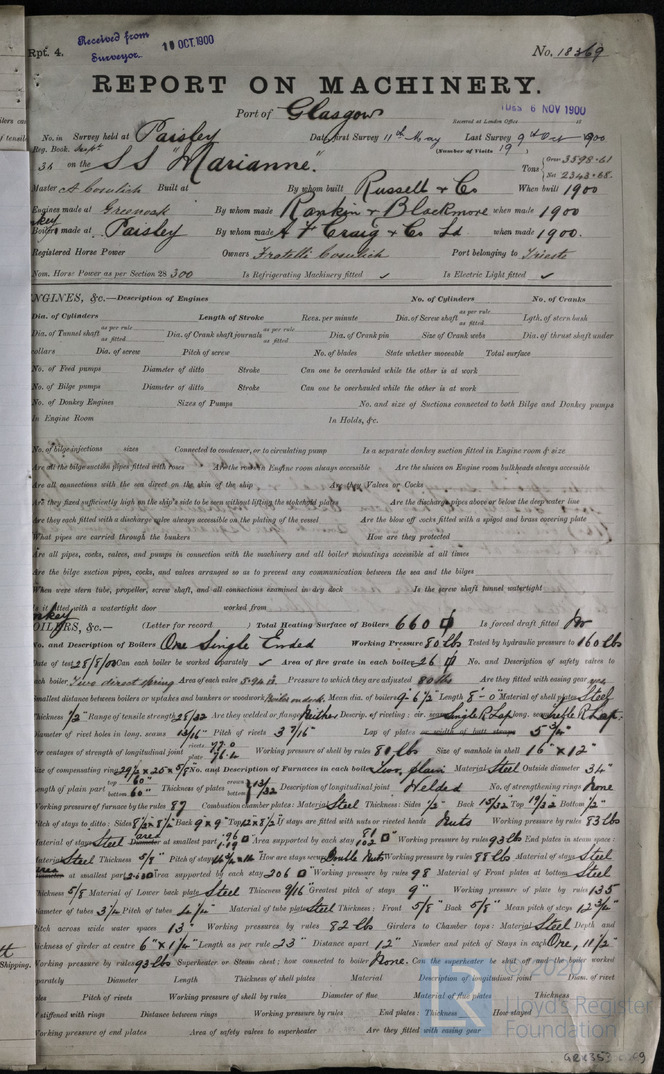 Rpt. 4.
Received from
Surveyor.
10 OCT. 1900
No. 18369
REPORT ON MACHINERY.
Port of Glasgow
TUES 6 NOV 1900
Received at London Office
No. in Survey held at Paisley Date, first Survey 11th May Last Survey 9th Oct 1900
Reg. Book. (Number of Visits 19)
34 on the S S "Marianne." Tons Gross 3598.61
Net 2343.68
Master A Cosulich Built at By whom built Russell & Co When built 1900
Engines made at Greenock By whom made Rankin & Blackmore when made 1900
Boilers made at Paisley By whom made A F Craig & Co Ld when made 1900.
Registered Horse Power Owners Fratelli Cosulich Port belonging to Trieste
Nom. Horse Power as per Section 28 300 Is Refrigerating Machinery fitted ✓ Is Electric Light fitted ✓
ENGINES, &c.—Description of Engines No. of Cylinders No. of Cranks
Dia. of Cylinders Length of Stroke Revs. per minute Dia. of Screw shaft as per rule as fitted Lgth. of stern bush
Dia. of Tunnel shaft as per rule as fitted Dia. of Crank shaft journals as per rule as fitted Dia. of Crank pin Size of Crank webs Dia. of thrust shaft under
collars Dia. of screw Pitch of screw No. of blades State whether moveable Total surface
No. of Feed pumps Diameter of ditto Stroke Can one be overhauled while the other is at work
No. of Bilge pumps Diameter of ditto Stroke Can one be overhauled while the other is at work
No. of Donkey Engines Sizes of Pumps No. and size of Suctions connected to both Bilge and Donkey pumps
In Engine Room In Holds, &c.
No. of bilge injections sizes Connected to condenser, or to circulating pump Is a separate donkey suction fitted in Engine room & size
Are all the bilge suction pipes fitted with roses Are the roses in Engine room always accessible Are the sluices on Engine room bulkheads always accessible
Are all connections with the sea direct on the skin of the ship Are they Valves or Cocks
Are they fixed sufficiently high on the ship's side to be seen without lifting the stokehold plates Are the discharge pipes above or below the deep water line
Are they each fitted with a discharge valve always accessible on the plating of the vessel Are the blow off cocks fitted with a spigot and brass covering plate
What pipes are carried through the bunkers How are they protected
Are all pipes, cocks, valves, and pumps in connection with the machinery and all boiler mountings accessible at all times
Are the bilge suction pipes, cocks, and valves arranged so as to prevent any communication between the sea and the bilges
When were stern tube, propeller, screw shaft, and all connections examined in dry dock Is the screw shaft tunnel watertight
Is it fitted with a watertight door worked from
BOILERS, &c.— (Letter for record ) Total Heating Surface of Boilers 660 Is forced draft fitted No
No. and Description of Boilers One Single Ended Working Pressure 80 lbs Tested by hydraulic pressure to 160 lbs
Date of test 28/8/00 Can each boiler be worked separately ✓ Area of fire grate in each boiler 26 No. and Description of safety valves to
each boiler Two direct spring Area of each valve 5.94 Pressure to which they are adjusted 80 lbs Are they fitted with easing gear yes
Smallest distance between boilers or uptakes and bunkers or woodwork Boiler on deck Mean dia. of boilers 9'-6 1/2" Length 8'-0" Material of shell plates Steel
Thickness 1/2" Range of tensile strength 28/32 Are they welded or flanged Neither Descrip. of riveting: cir. seams Single R Lap long. seams Treble R Lap.
Diameter of rivet holes in long. seams 13/16" Pitch of rivets 3 7/16" Lap of plates or width of butt straps 5 3/4"
Per centages of strength of longitudinal joint rivets 77.0 plate 76.4 Working pressure of shell by rules 80 lbs Size of manhole in shell 16" x 12"
Size of compensating ring 29 1/2 x 25 x 5/8 No. and Description of Furnaces in each boiler Two, plain Material Steel Outside diameter 34"
Length of plain part top 60" bottom 60" Thickness of plates crown bottom 13/32 Description of longitudinal joint Welded No. of strengthening rings None
Working pressure of furnace by the rules 87 Combustion chamber plates: Material Steel Thickness: Sides 1/2" Back 15/32 Top 19/32 Bottom 1/2"
Pitch of stays to ditto: Sides 8 1/2 x 8 1/2 Back 9" x 9" Top 12 x 8 1/2 If stays are fitted with nuts or riveted heads Nuts Working pressure by rules 83 lbs
Material of stays Steel area at smallest part .96 1.19 Area supported by each stay 81 102 Working pressure by rules 93 lbs End plates in steam space:
Material Steel Thickness 5/8" How are stays secured Double Nuts Working pressure by rules 88 lbs Material of stays Steel
area at smallest part Area supported by each stay 206 Working pressure by rules 98 Material of Front plates at bottom Steel
Thickness 5/8 Material of Lower back plate Steel Thickness 9/16 Greatest pitch of stays 9" Working pressure of plate by rules 135
Diameter of tubes 3 1/4 Pitch of tubes 4 1/2" Material of tube plates Steel Thickness: Front 5/8" Back 5/8" Mean pitch of stays 12 3/4"
Pitch across wide water spaces 13" Working pressures by rules 82 lbs Girders to Chamber tops: Material Steel Depth and
thickness of girder at centre 6" x 1 1/4" Length as per rule 23" Distance apart 12" Number and pitch of Stays in each One, 11 1/2"
Working pressure by rules 93 lbs Superheater or Steam chest; how connected to boiler None. Can the superheater be shut off and the boiler worked
separately Diameter Length Thickness of shell plates Material Description of longitudinal joint Diam. of rivet
holes Pitch of rivets Working pressure of shell by rules Diameter of flue Material of flue plates Thickness
If stiffened with rings Distance between rings Working pressure by rules End plates: Thickness How stayed
Working pressure of end plates Area of safety valves to superheater Are they fitted with easing gear
Shipping.
© 2020
Lloyd's Register
Foundation